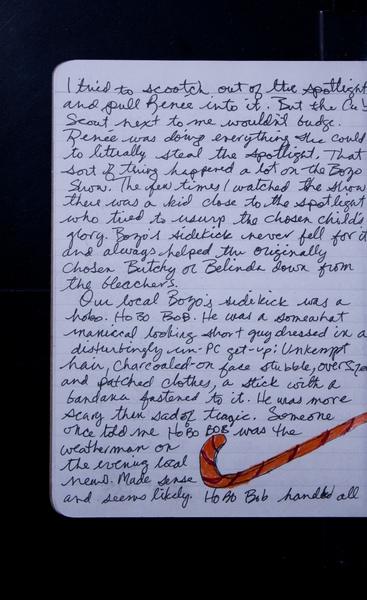 I tried to scootch out of the spotlight
and pull Renee into it. But the Cub
Scout next to me wouldn't budge.
Renée was doing everything she could
to literally steal the spotlight. That
sort of thing happened a lot on the Bozo
Show. The few times I watched the show
there was a kid close to the spotlight
who tried to usurp the chosen child's
glory. Bozo's sidekick never fell for it
and always helped the originally
chosen Butchy or Belinda down from
the bleachers.
Our local Bozo's sidekick was a
hobo. HOBO BOB. He was a somewhat
maniacal looking short guy dressed in a
disturbingly un-PC get-up; Unkempt
hair, charcoaled-on face stubble, oversized
and patched clothes, a stick with a
bandana fastened to it. He was more
scary than sad or tragic. Someone
once told me HOBO BOB was the
weatherman on
the evening local
news. Made sense
and seems likely. HOBO Bob handed all